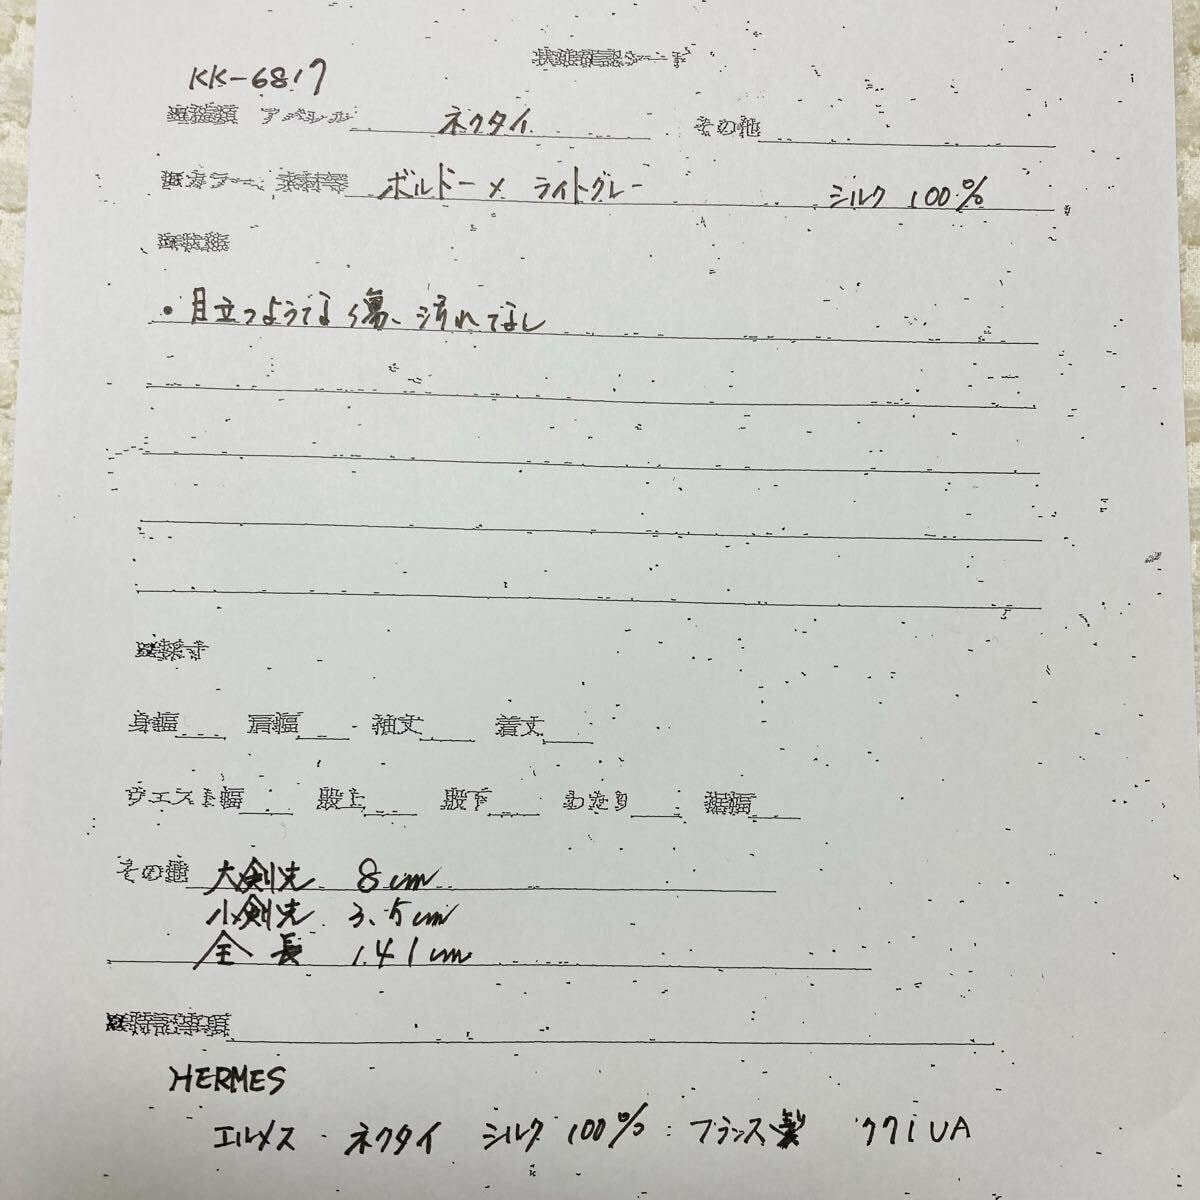 状態確認シート
KK-6817
■種類 アパレル ネクタイ その他
■カラー、素材等 ボルドー × ライトグレー シルク 100%
■状態
・目立つような傷、汚れてなし
■採寸
身幅 肩幅 袖丈 着丈
ウエスト幅 股上 股下 わたり 裾幅
その他 大剣先 8cm
小剣先 3.5cm
全長 141cm
■特記事項
HERMES
エルメス ネクタイ シルク 100% フランス製 771UA